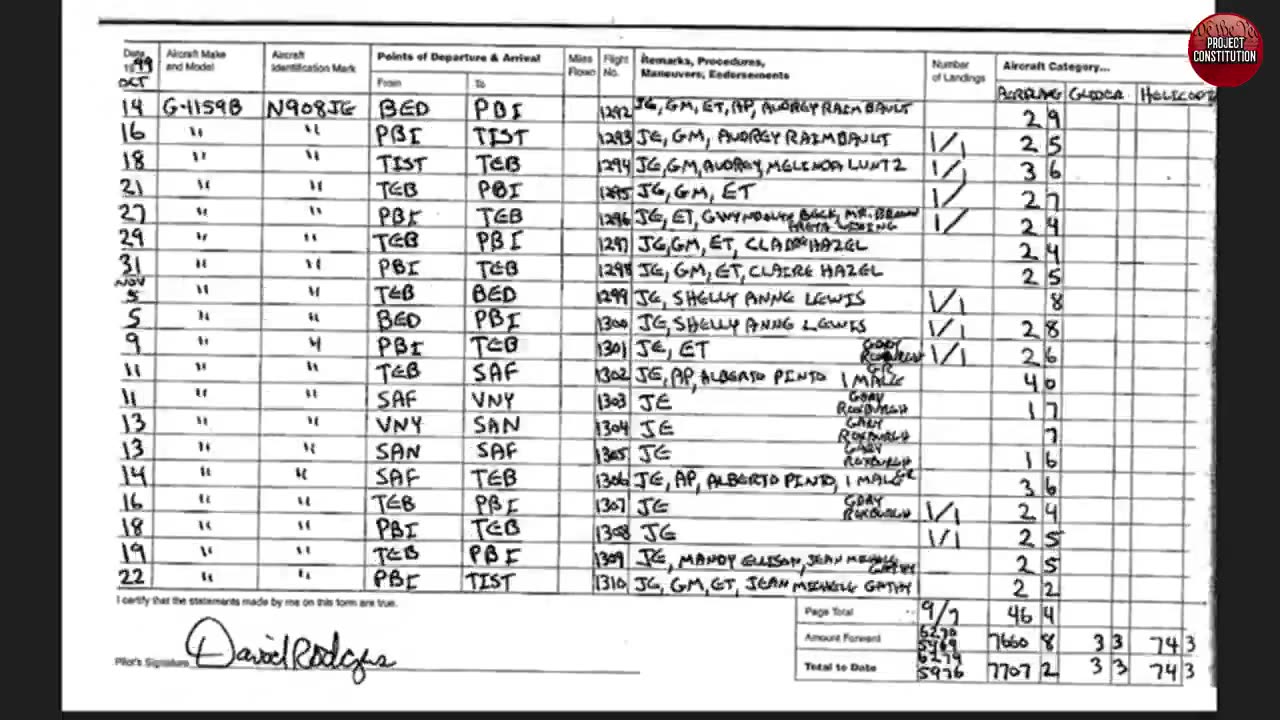 We the Pe
PROJECT
CONSTITUTION
Date 1999 Aircraft Make and Model Aircraft Identification Mark Points of Departure & Arrival Miles Flown Flight No. Remarks, Procedures, Maneuvers, Endorsements Number of Landings Aircraft Category...
OCT From To AIRPLANE GLIDER HELICOPTER
14 G-1159B N908JE BED PBI 1292 JE, GM, ET, AP, AUDREY RAIMBAULT 2 9
16 " " PBI TIST 1293 JE, GM, AUDREY RAIMBAULT 1/1 2 5
18 " " TIST TEB 1294 JE, GM, AUDREY, MELINDA LUNTZ 1/1 3 6
21 " " TEB PBI 1295 JE, GM, ET 1/ 2 7
27 " " PBI TEB 1296 JE, ET, GWENDOLYN BECK, MR. BROWN 1/ 2 4
29 " " TEB PBI 1297 JE, GM, ET, CLAIRE HAZEL 2 4
31 " " PBI TEB 1298 JE, GM, ET, CLAIRE HAZEL 2 5
NOV
5 " " TEB BED 1299 JE, SHELLY ANNE LEWIS 1/1 8
5 " " BED PBI 1300 JE, SHELLY ANNE LEWIS 1/1 2 8
9 " " PBI TEB 1301 JE, ET GARY ROXBURGH 1/1 2 6
11 " " TEB SAF 1302 JE, AP, ALBERTO PINTO 1 MALE GR 4 0
11 " " SAF VNY 1303 JE GARY ROXBURGH 1 7
13 " " VNY SAN 1304 JE GARY ROXBURGH 7
13 " " SAN SAF 1305 JE GARY ROXBURGH 1 6
14 " " SAF TEB 1306 JE, AP, ALBERTO PINTO, 1 MALE GR 3 6
16 " " TEB PBI 1307 JE GARY ROXBURGH 1/1 2 4
18 " " PBI TEB 1308 JE 1/1 2 5
19 " " TEB PBI 1309 JE, MANDY ELLISON, JEAN MICHELL GATHY 2 5
22 " " PBI TIST 1310 JE, GM, ET, JEAN MICHELL GATHY 2 2
I certify that the statements made by me on this form are true.
Page Total 9/7 46 4
Amount Forward 6270 5969 7660 8 3 3 74 3
Total to Date 6279 5976 7707 2 3 3 74 3
Pilot's Signature David Rodgers